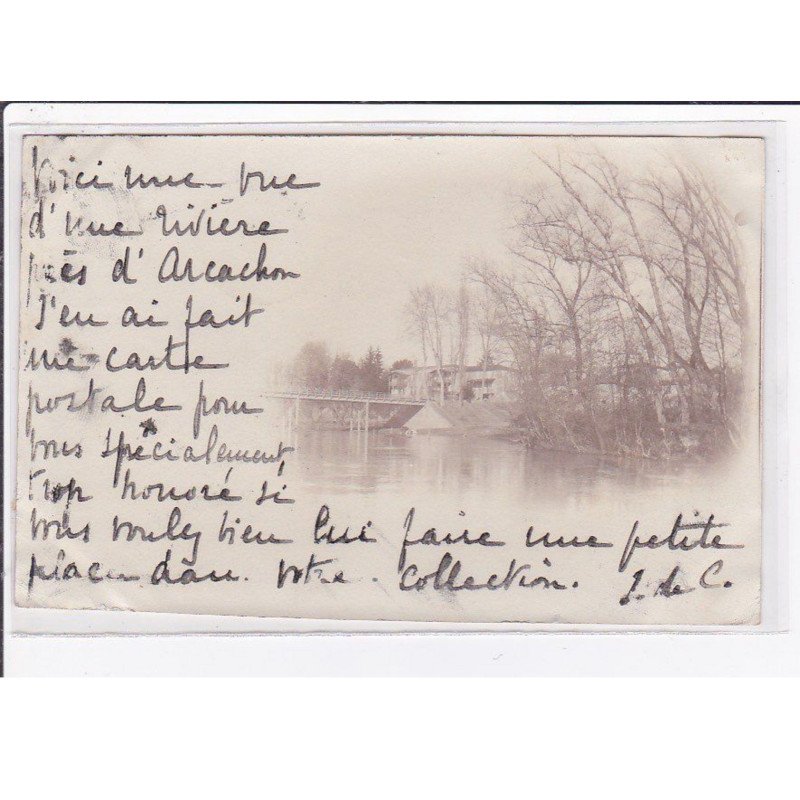 Voici une vue
d'une rivière
près d'Arcachon
J'en ai fait
une carte
postale pour
vous spécialement,
trop honoré si
vous voulez bien lui faire une petite
place dans votre collection. J. de C.